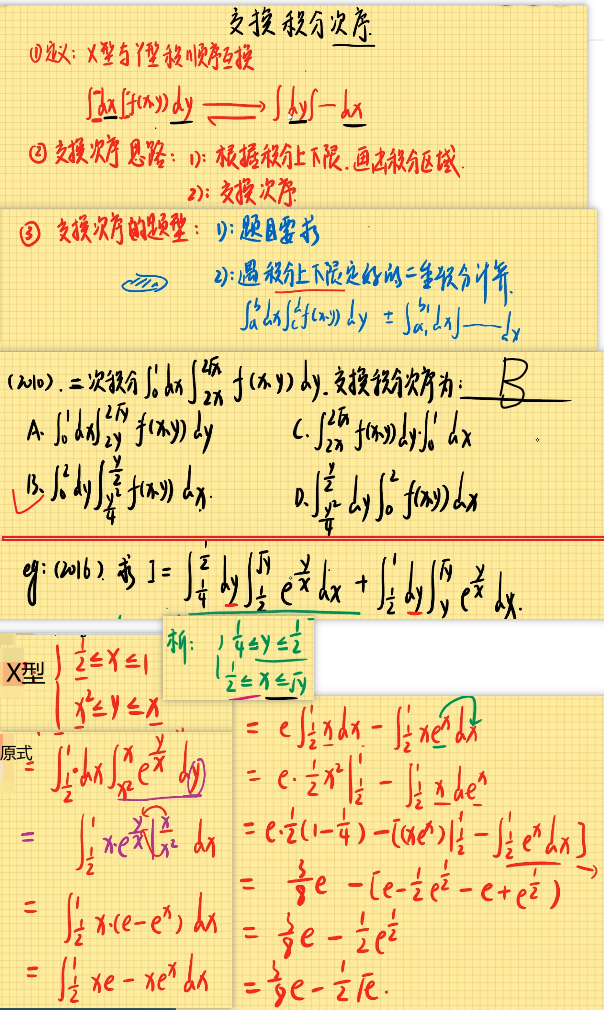 交换积分次序
①定义: X型与Y型积顺序互换
∫dx∫f(x,y)dy ⇌ ∫dy∫—dx
②交换次序思路: 1): 根据积分上下限.画出积分区域.
2): 交换次序.
③ 交换次序的题型: 1): 题目要求
2): 遇积分上下限定好的二重积分计算.
∫_a^b dx∫_c^d f(x,y) dy ± ∫_{a_1}^{b_1} dx∫——dy
(2010). 二次积分∫_0^1 dx∫_{2x}^{2√x} f(x,y)dy. 交换积分次序为: B
A. ∫_0^1 dx∫_{2y}^{2√y} f(x,y)dy
C. ∫_{2x}^{2√x} f(x,y)dy·∫_0^1 dx
B. ∫_0^2 dy∫_{y²/4}^{y/2} f(x,y)dx.
D. ∫_{y²/4}^{y/2} dy∫_0^2 f(x,y)dx
eg: (2016) 求 I = ∫_{1/4}^{1/2} dy∫_{1/2}^{√y} e^{y/x} dx + ∫_{1/2}^1 dy∫_y^{√y} e^{y/x} dx.
析: { 1/4 ≤ y ≤ 1/2
1/2 ≤ x ≤ √y
X型 { 1/2 ≤ x ≤ 1
x² ≤ y ≤ x
原式 = ∫_{1/2}^1 dx∫_{x²}^x e^{y/x} dy
= ∫_{1/2}^1 x·e^{y/x}|_{x²}^x dx
= ∫_{1/2}^1 x·(e-e^x) dx
= ∫_{1/2}^1 xe - xe^x dx
= e∫_{1/2}^1 x dx - ∫_{1/2}^1 xe^x dx
= e·1/2 x²|_{1/2}^1 - ∫_{1/2}^1 x de^x
= e·1/2(1-1/4) - [(xe^x)|_{1/2}^1 - ∫_{1/2}^1 e^x dx]
= 3/8 e - [e - 1/2 e^{1/2} - e + e^{1/2})
= 3/8 e - 1/2 e^{1/2}
= 3/8 e - 1/2 √e.